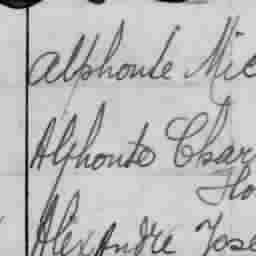 Alphonse Mic
Alphonse Char
Ho
Alexandre Jose